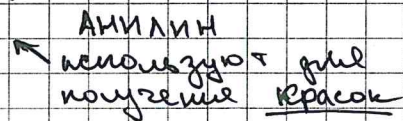 АНИЛИН
используют для
получения красок